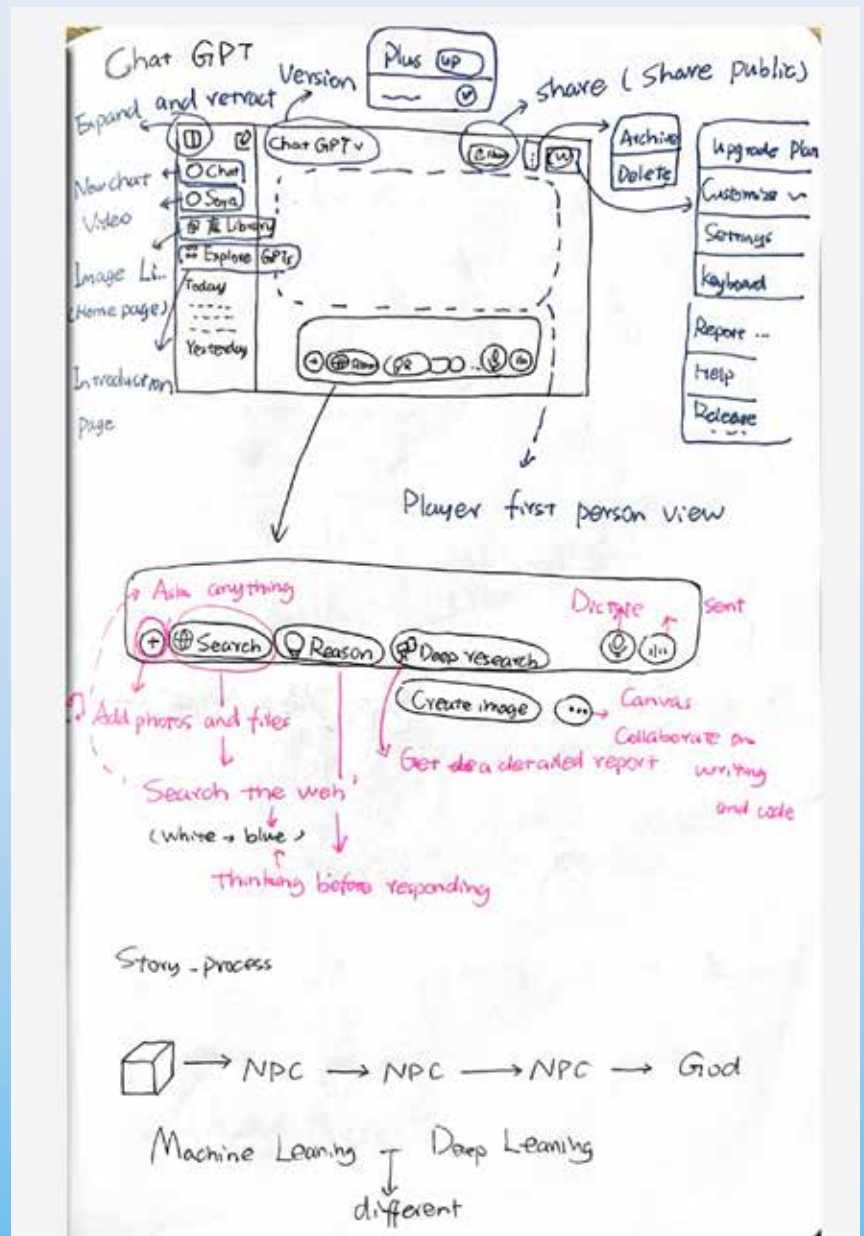 Chat GPT
Version
Plus up
share (Share public)
Expand and retract
Chat GPT
Share
Archive
Delete
Upgrade Plan
Customize
Settings
keyboard
Report ...
Help
Release
New chat
Chat
Video
Sora
Library
Image Li..
(Home page)
Explore GPTs
Today
Yesterday
Introduction
page
Player first person view
Ask anything
Dictate
sent
+ Search
Reason
Deep research
Create image
...
Canvas
Collaborate on
writing
and code
Add photos and files
Get a detailed report
Search the web
(white → blue)
Thinking before responding
Story - process
→ NPC → NPC → NPC → God
Machine Leaning Deep Leaning
different